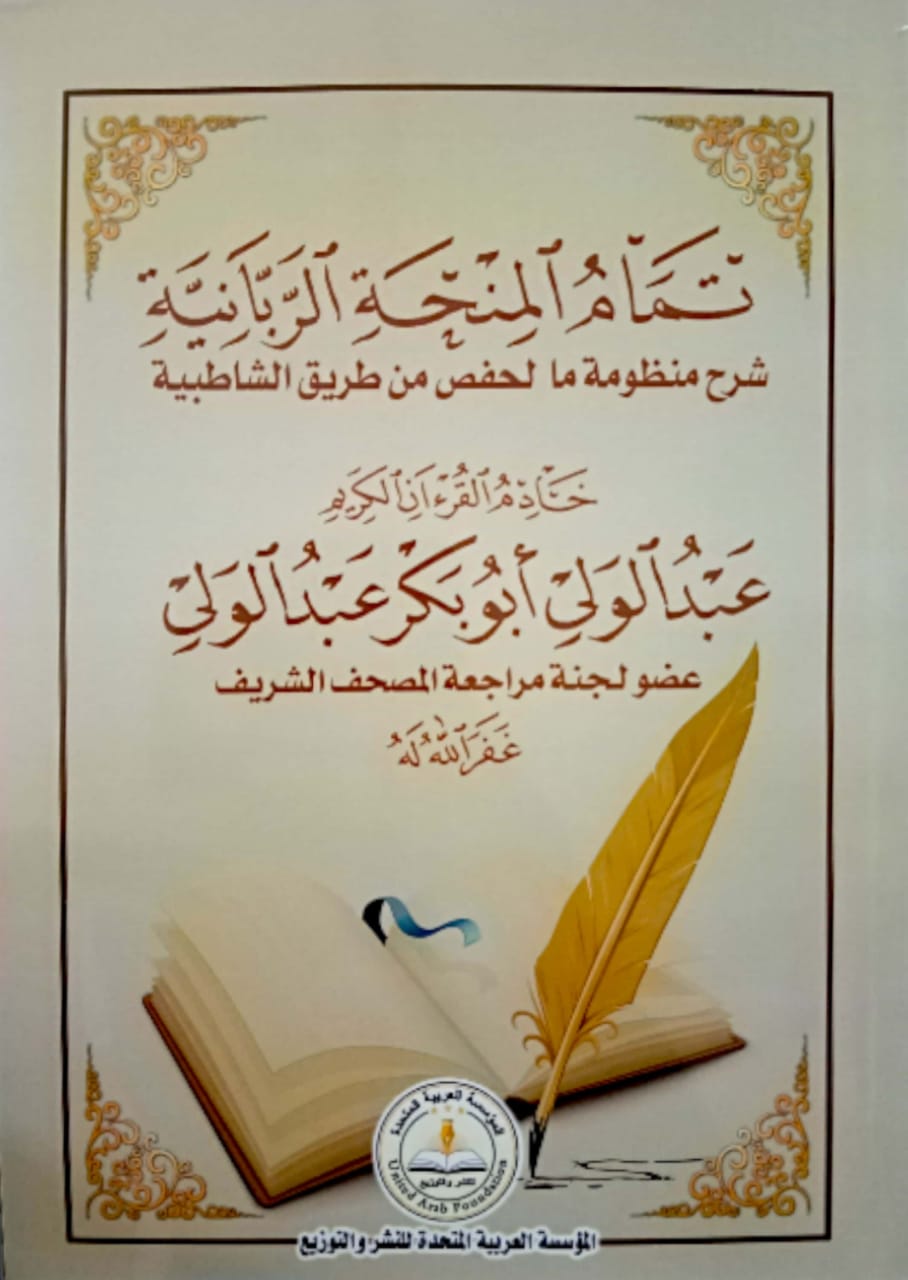 تَمَامُ الْمِنْحَةِ الرَّبَّانِيَّةِ
شرح منظومة ما لحفص من طريق الشاطبية
خَادِمُ الْقُرْءَانِ الْكَرِيمِ
عَبْدُ الْوَلِيِّ أَبُو بَكْرٍ عَبْدُ الْوَلِيِّ
عضو لجنة مراجعة المصحف الشريف
غَفَرَ اللَّهُ لَهُ
المؤسسة العربية المتحدة
للنشر والتوزيع
United Arab Foundation
المؤسسة العربية المتحدة للنشر والتوزيع